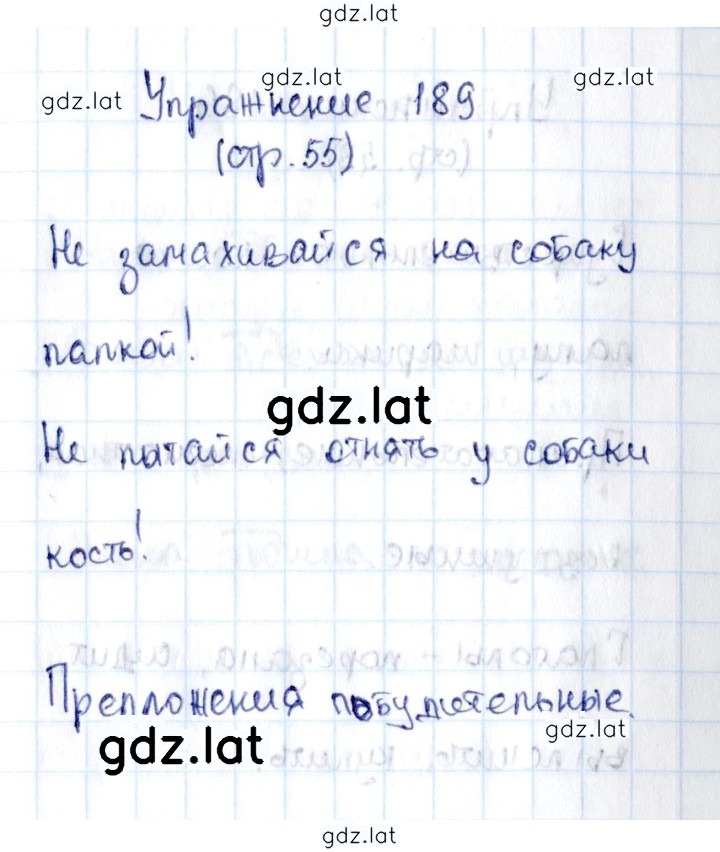 gdz.lat
gdz.lat gdz.lat
gdz.lat Упражнение 189
(стр. 55)
Не замахивайся на собаку
папкой!
gdz.lat
Не пытайся отнять у собаки
кость!
Препложения побудительные.
gdz.lat
gdz.lat
gdz.lat